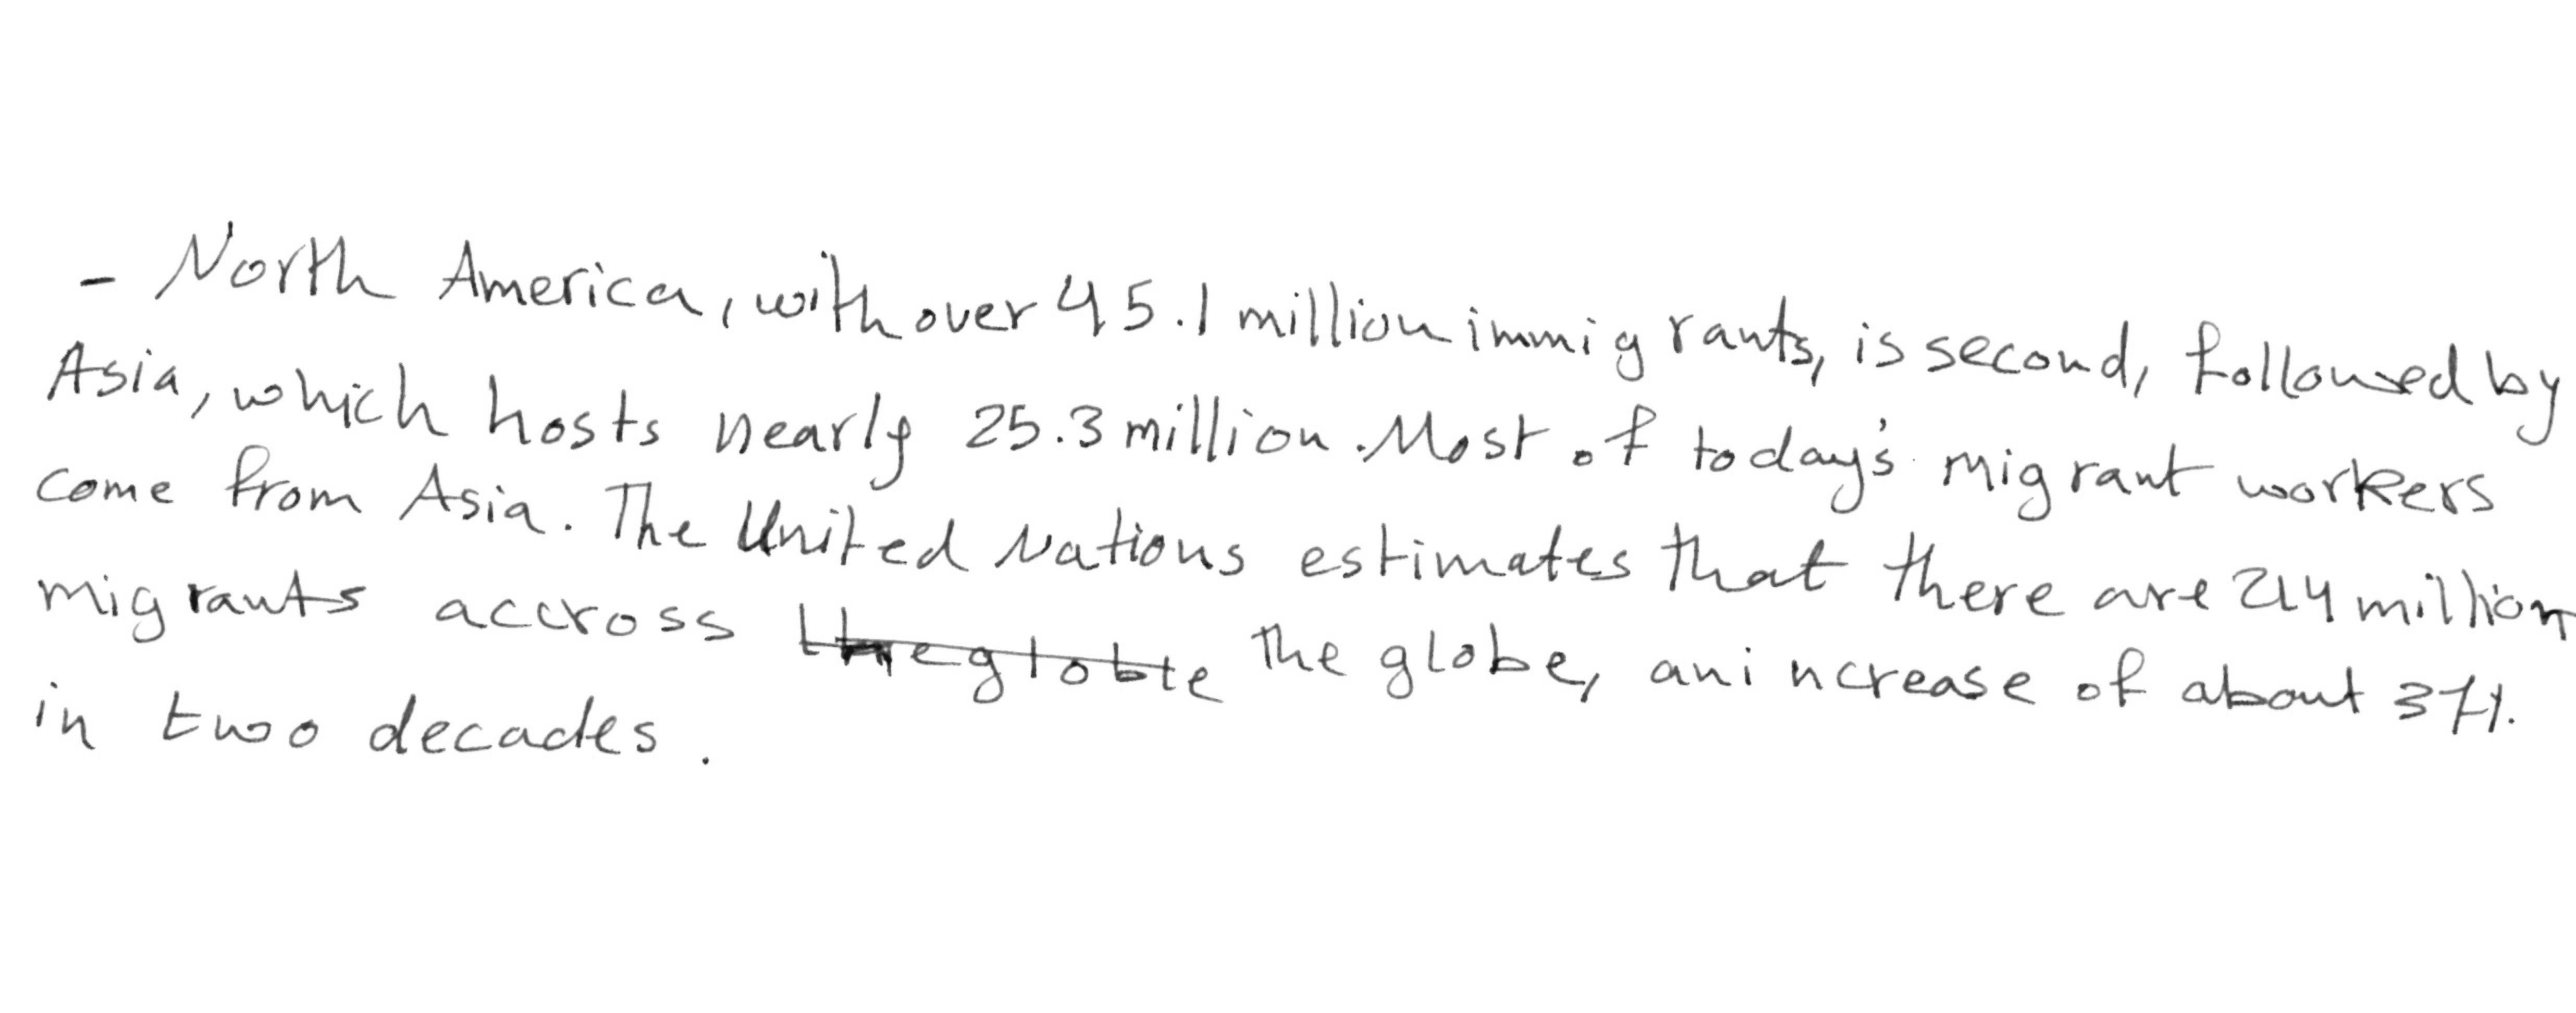 - North America, with over 45.1 million immigrants, is second, followed by
Asia, which hosts nearly 25.3 million. Most of today's migrant workers
come from Asia. The United Nations estimates that there are 214 million
migrants accross the globe, an increase of about 37%
in two decades.